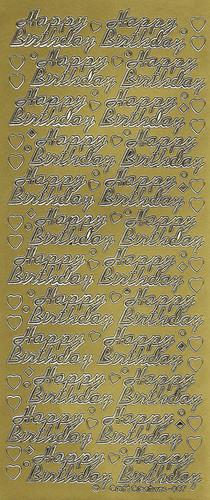 Happy Happy
Birthday Birthday
Happy Happy
Birthday Birthday
Happy Happy
Birthday Birthday
Happy Happy
Birthday Birthday
Happy Happy
Birthday Birthday
Happy Happy
Birthday Birthday
Happy Happy
Birthday Birthday
Happy Happy
Birthday Birthday
Happy Happy
Birthday Birthday
Happy Happy
Birthday Birthday
Happy Happy
Birthday Birthday
Happy Happy
Birthday Birthday
Craft Creations